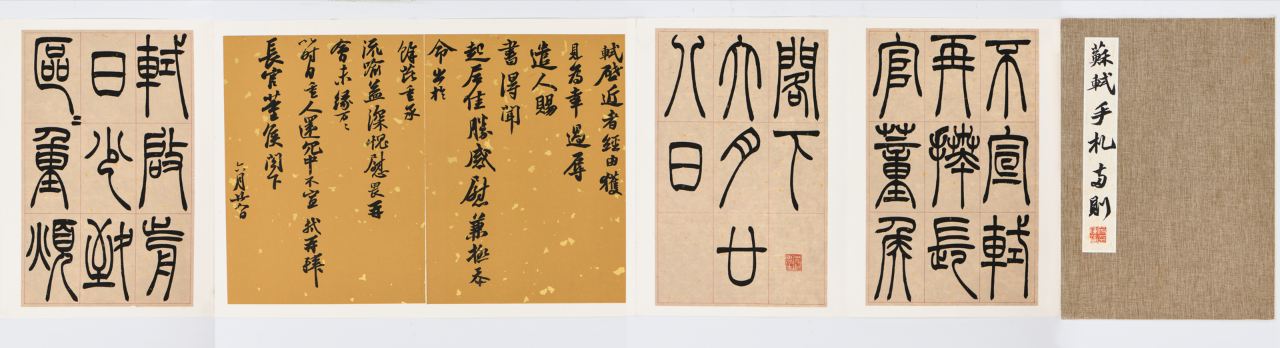 蘇軾手札兩則
不宣軾
再拜長
官董侯
閣下
六月廿
八日
軾啟近者經由獲
見為幸過辱
遣人賜
書得聞
起居佳勝感慰兼極忝
命出於
餘芘重承
流喻益深愧慰畏再
會未緣萬〻
以時自重人還冗中不宣 軾再拜
長官董侯閣下
六月廿八日
軾啟前
日少致
區〻重煩